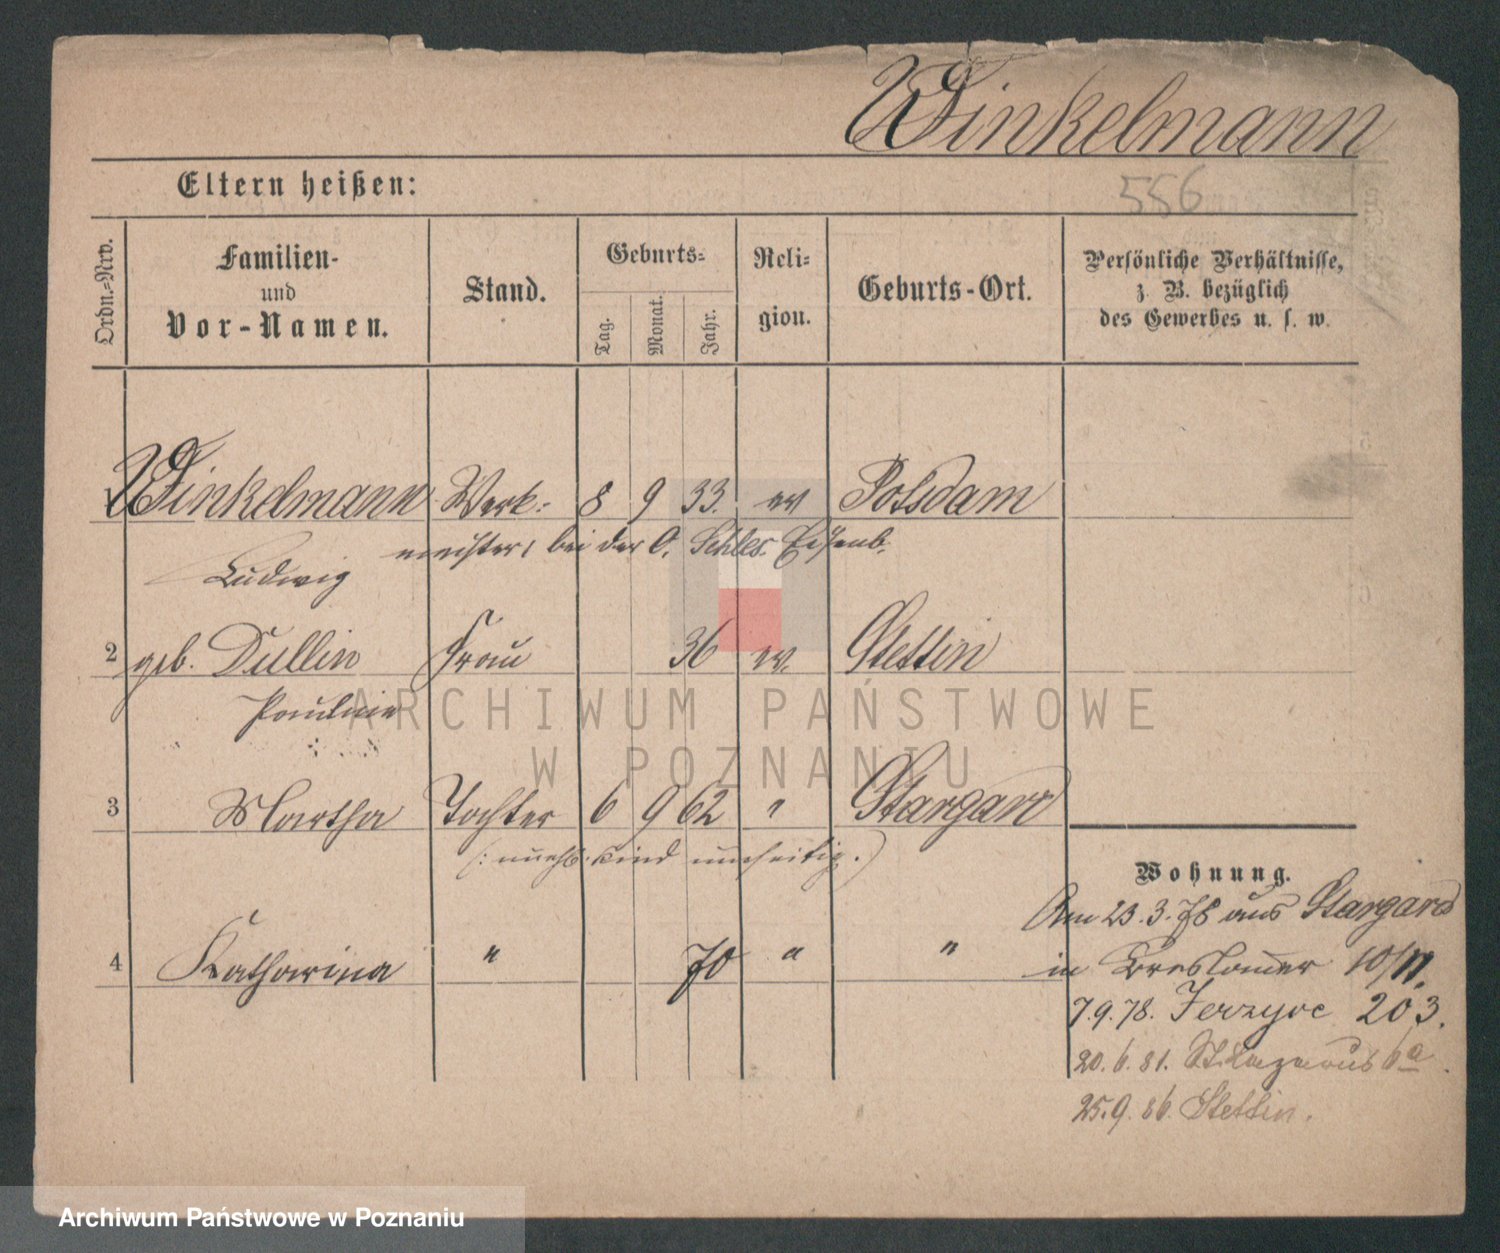 Winkelmann
Eltern heißen:
556
Ordn.-Nro.
Familien-
und
Vor-Namen.
Stand.
Geburts-
Tag.
Monat.
Jahr.
Reli-
gion.
Geburts-Ort.
Persönliche Verhältnisse,
z. B. bezüglich
des Gewerbes u. s. w.
1 Winkelmann Werk- 8 9 33. ev Potsdam
meister, bei der O. Schles. Eisenb.
Ludwig
2 geb. Dullin Frau 36 ev. Stettin
Pauline
ARCHIWUM PAŃSTWOWE
W POZNANIU
3 Martha Tochter 6 9 62 " Stargard
(: unehl. Kind :)
4 Katharina " 70 " "
Wohnung.
Am 23.3.78 aus Stargard
in Breslauer 10/11.
7.9.78. Jerzyce 203.
20.6.81. St. Lazarus 6a.
25.9.86. Stettin.
Archiwum Państwowe w Poznaniu